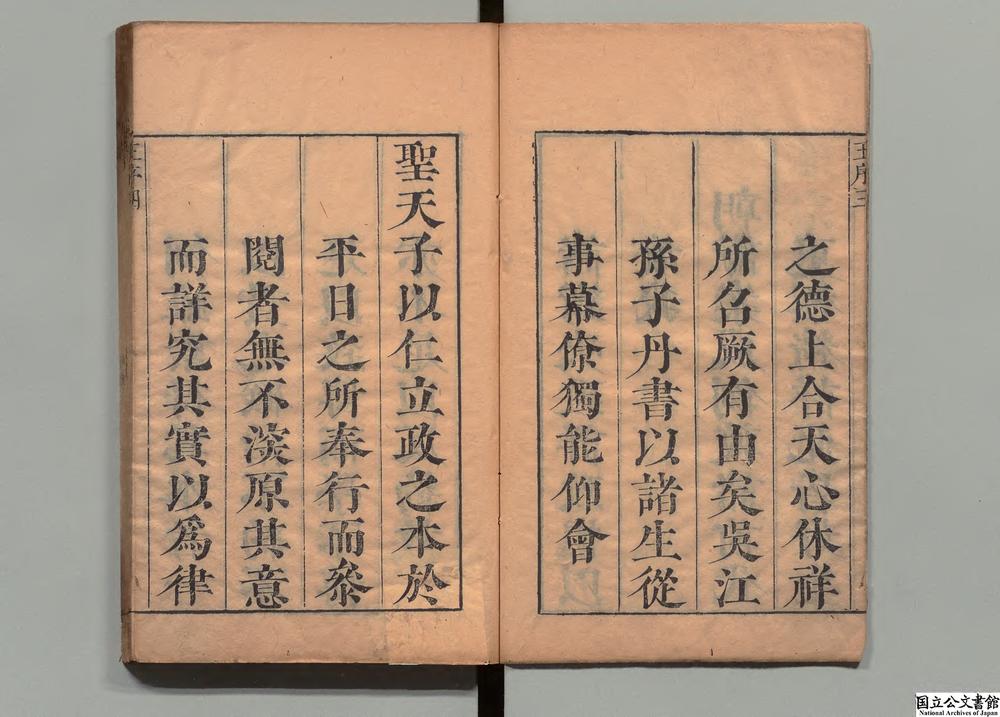 之德上合天心休祥
所名厥有由矣吳江
孫子丹書以諸生從
事幕僚獨能仰會
聖天子以仁立政之本於
平日之所奉行而叅
閱者無不深原其意
而詳究其實以爲律
王序三
王序四
国立公文書館
National Archives of Japan